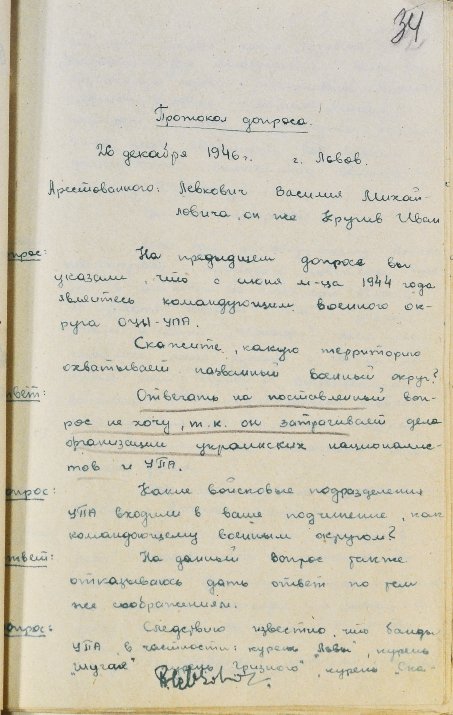 34
Протокол допроса.
26 декабря 1946 г. г. Львов.
Арестованного: Левкович Василия Михай-
ловича, он же Крулив Иван
прос: На предыдущем допросе вы
указали, что с июня м-ца 1944 года
являетесь командующим военного ок-
руга ОУН-УПА.
Скажите, какую территорию
охватывает названный военный округ?
твет: Отвечать на поставленный воп-
рос не хочу, т.к. он затрагивает дела
организации украинских националис-
тов и УПА.
опрос: Какие войсковые подразделения
УПА входили в ваше подчинение, как
командующему военным округом?
твет: На данный вопрос также
отказываюсь дать ответ по тем
же соображениям.
опрос: Следствию известно, что банды
УПА, в частности: курень "Львы", курень
курень курень